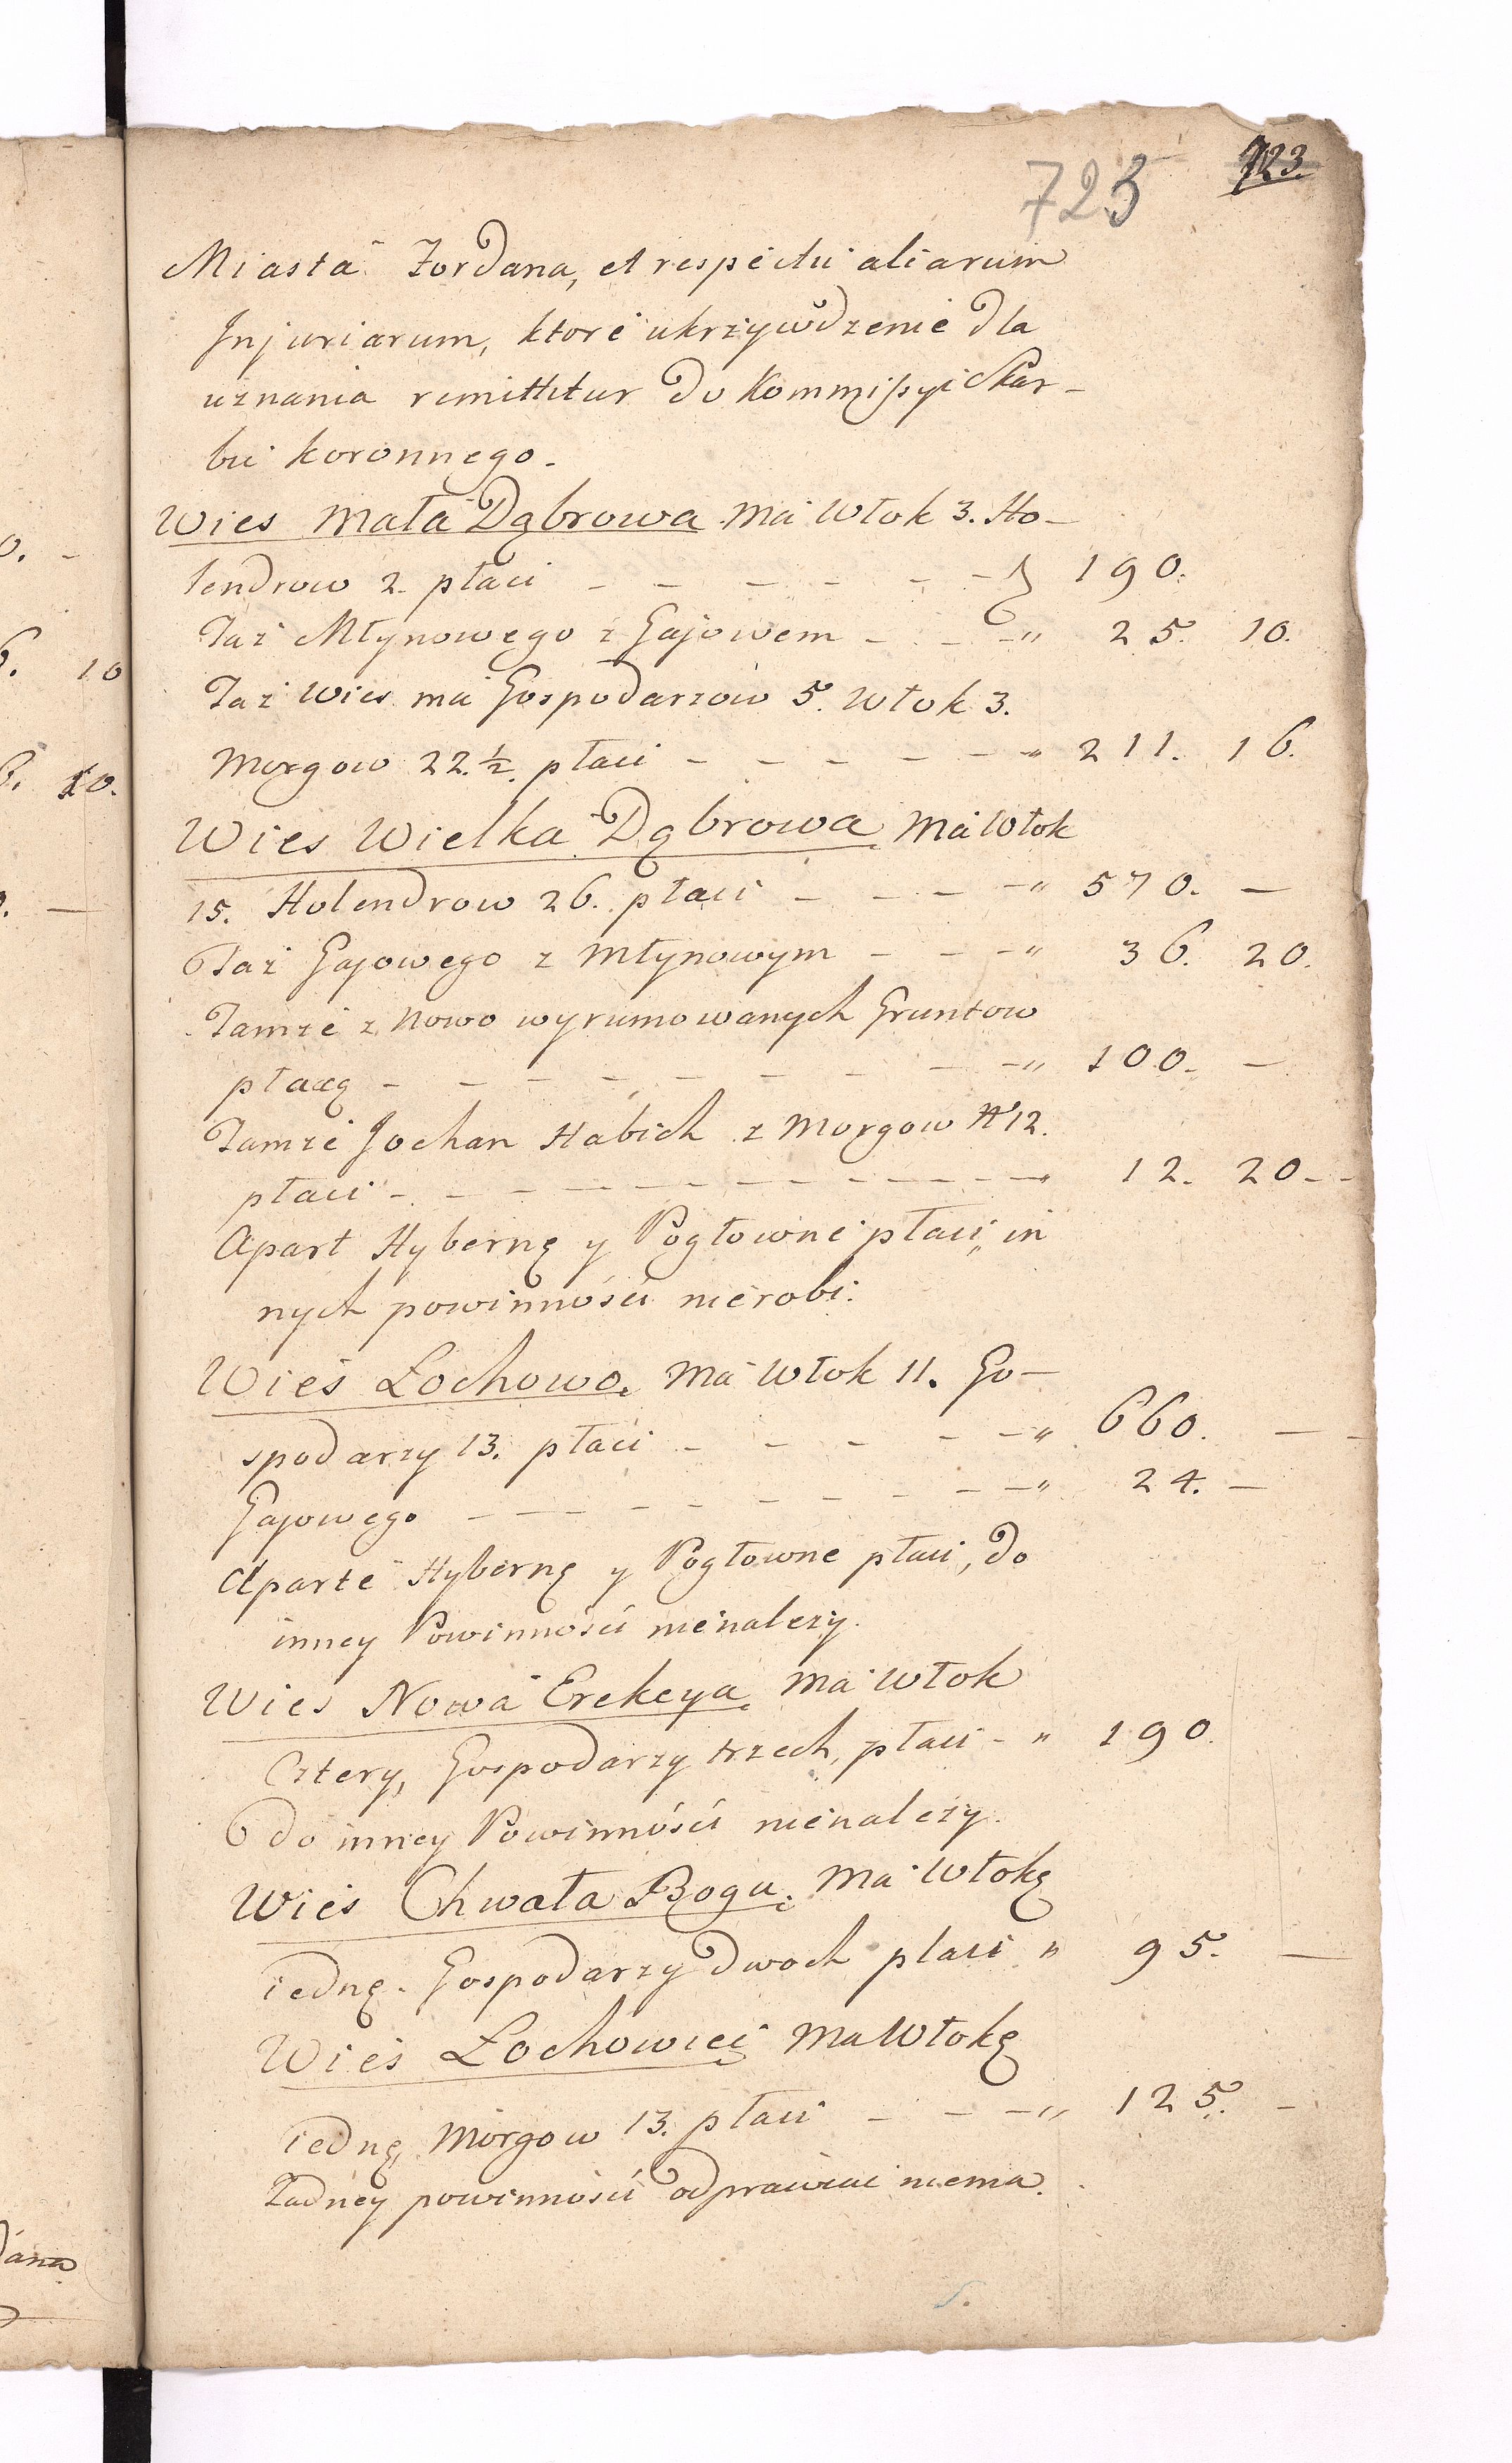 723 723.
Miasta Fordana, et respectu aliarum
Injuriarum, ktore ukrzywdzenie dla
uznania remittitur do Kommissyi Skar-
bu koronnego.
Wies Mała Dąbrowa ma Włok 3. Ho-
lendrow 2. płaci - - - - - - - 190.
Taż Młynowego z Gajowem - - - " 25. 10.
Taż Wies ma Gospodarzow 5. Włok 3.
Morgow 22. ½. płaci - - - - - - " 211. 16.
Wies Wielka Dąbrowa ma Włok
15. Holendrow 26. płaci - - - - " 570. -
Taż Gajowego z Młynowym - - - " 36. 20.
Tamże z Nowo wyrumowanych Gruntow
płacą - - - - - - - - - - " 100. -
Tamże Jochan Habich z Morgow N 12.
płaci - - - - - - - - - - - - " 12. 20 - -
Apart Hybernę y Pogłowne płaci, in
nych powinności nierobi.
Wieś Łochowo. ma Włok 11. Go-
spodarzy 13. płaci - - - - - " 660. - -
Gajowego - - - - - - - - - " 24. -
Aparte Hybernę y Pogłowne płaci, do
inney Powinności nienależy.
Wies Nowa Erekcya. ma Włok
Cztery, Gospodarzy trzech, płaci - " 190.
do inney Powinności nienależy.
Wieś Chwała Bogu. ma Włokę
iednę. Gospodarzy dwoch płaci " 95. -
Wieś Łochowici ma Włokę
iednę, Morgow 13. płaci - - - " 125. -
Żadney powinności odprawiać niema.